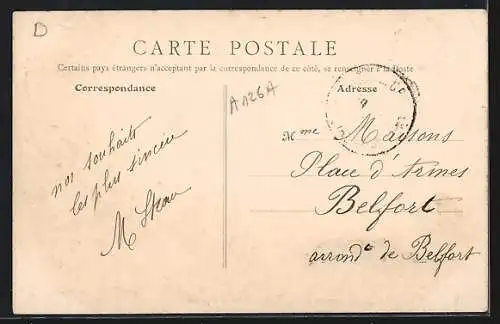 D
CARTE POSTALE
Certains pays étrangers n'acceptant par la correspondance de ce côté, se renseigner à la Poste
Correspondance
A126A
Adresse
nos souhaits
les plus sincères
M
Mme Maysons
Place d'Armes
Belfort
arrondt de Belfort